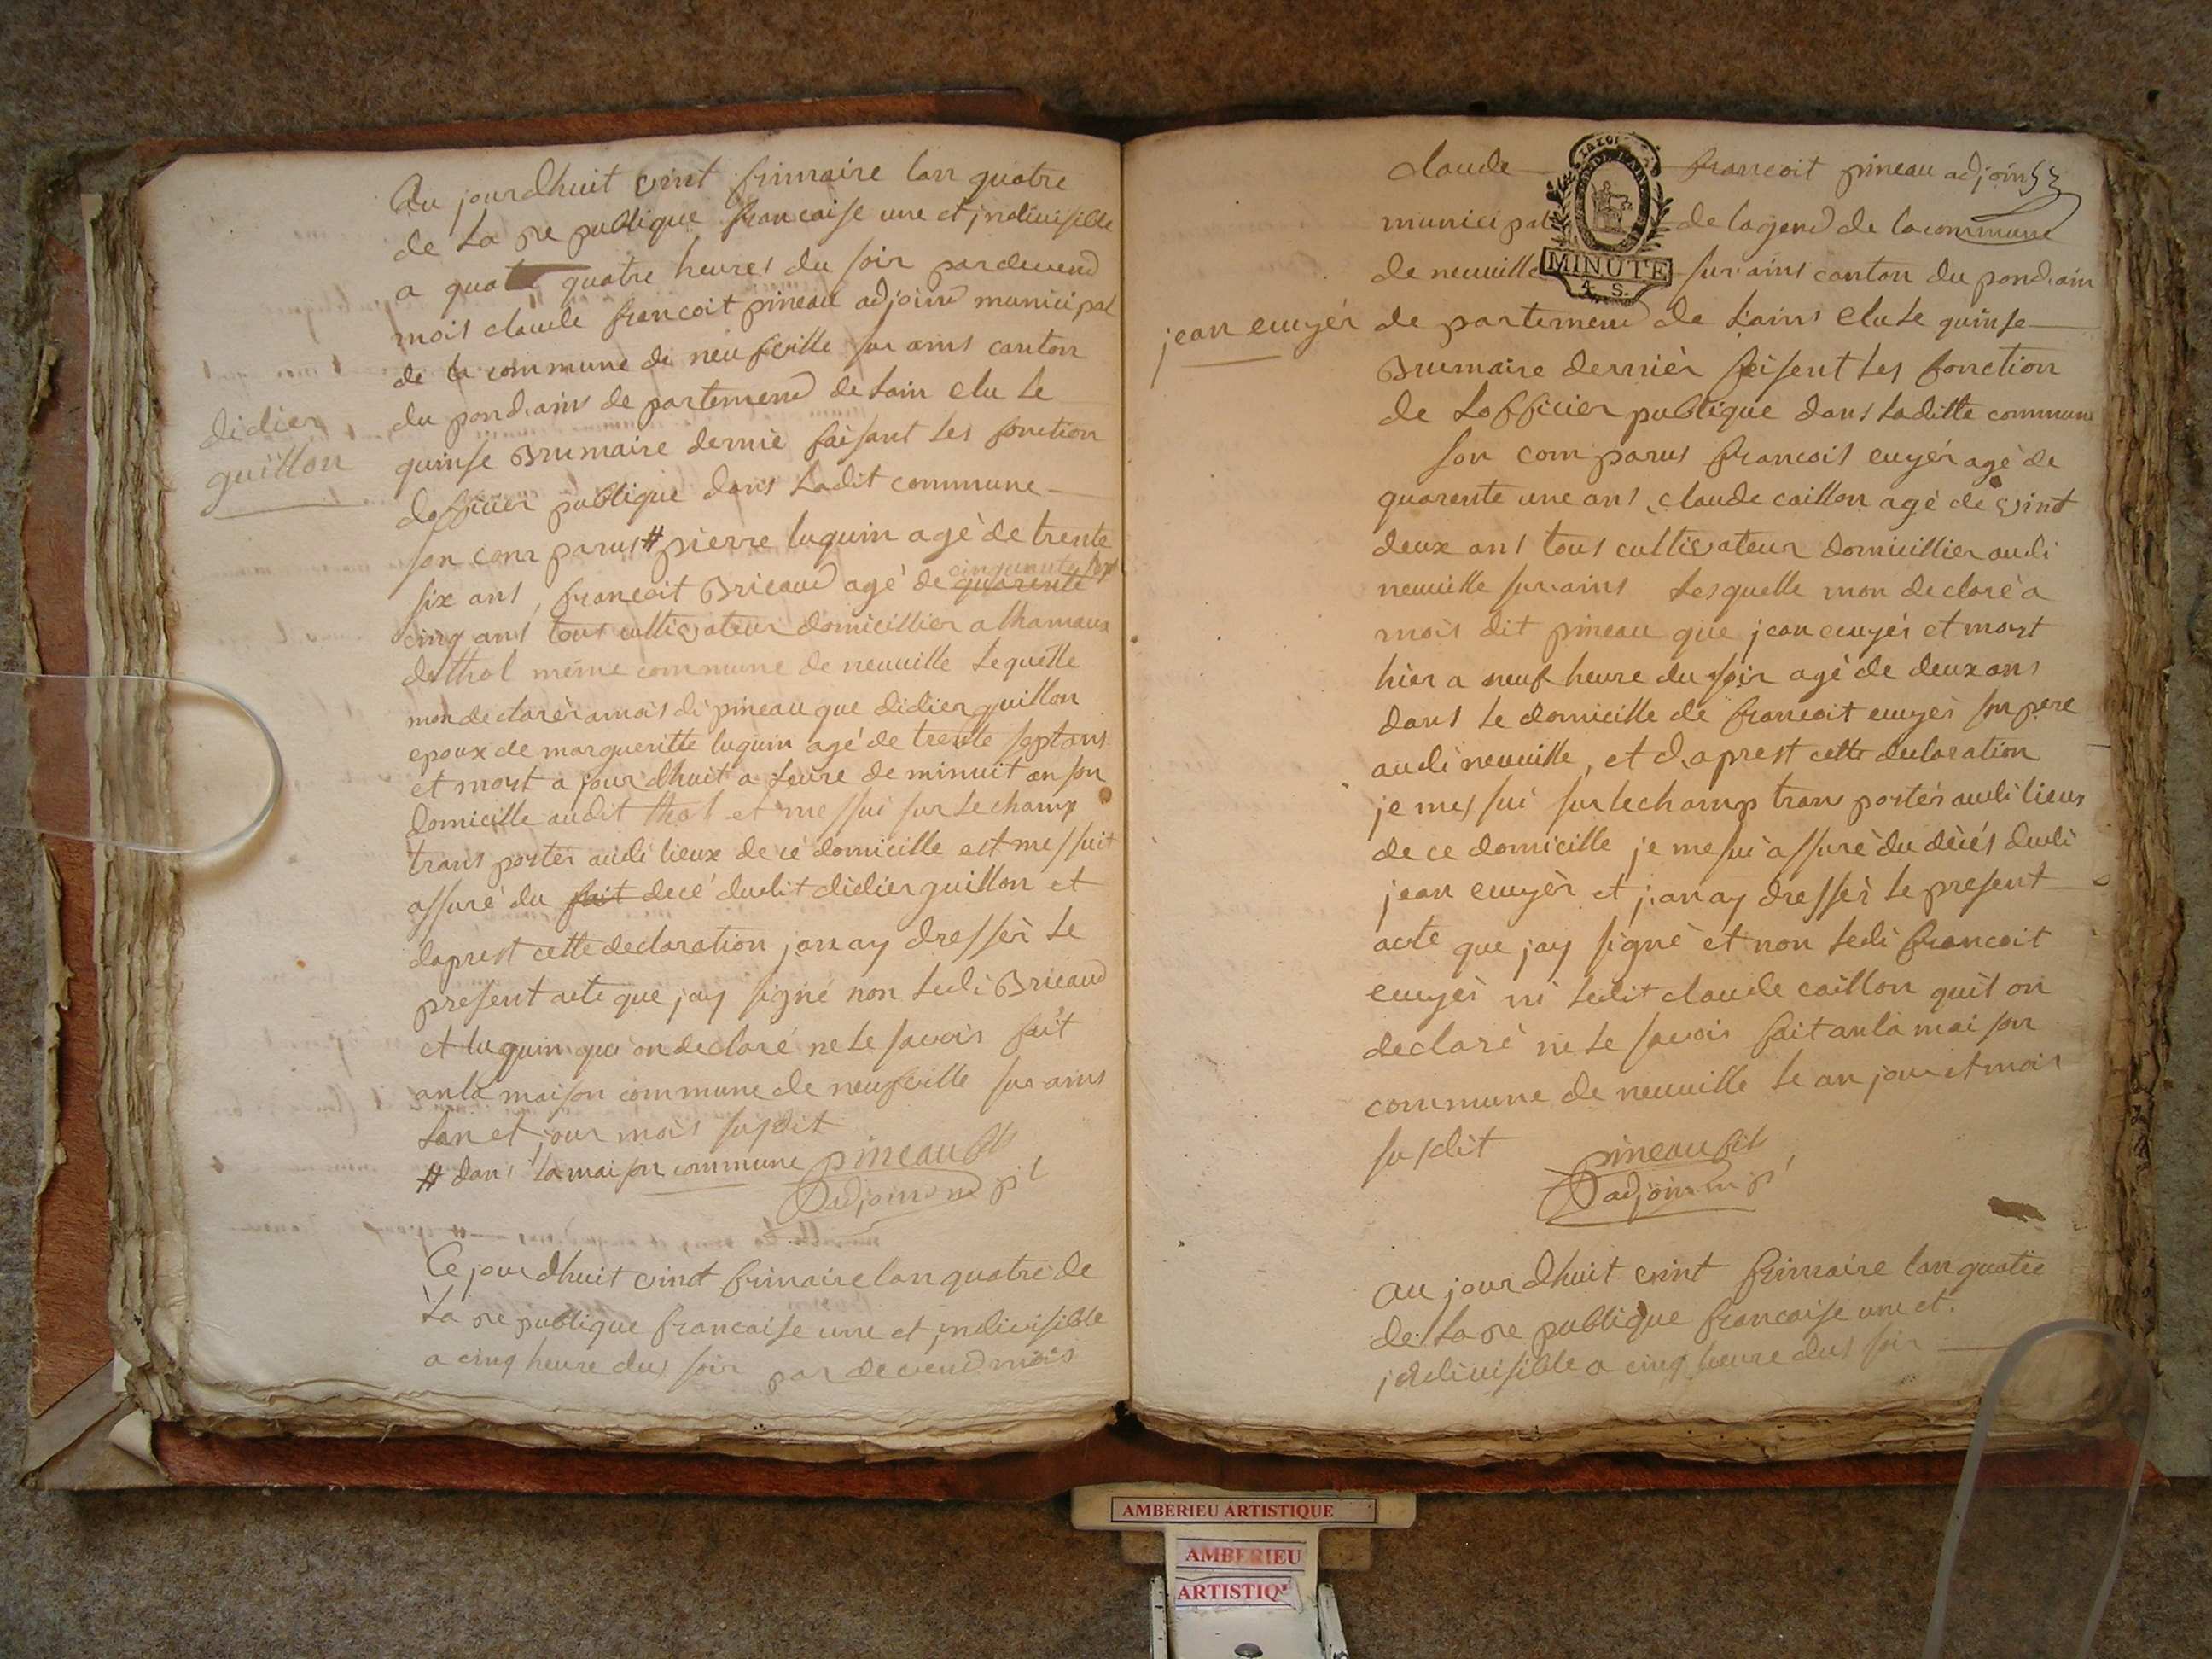 Au jourdhuit vint frimaire lan quatre
de La re publique francaise une et jndivisible
a quatre heures du soir pardevend
mois claude francoit pineau adjoind municipal
de la commune de neufville sur ains canton
du pond.ains de partemend de Lain elu Le
quinse Brumaire dernie faisant Les fonction
dofficier publique dans Ladit commune
didier
guillon
son com parus # pierre luquin agè de trente
six ans, francoit Bricaud agé de quarente
cinq ans tous cultivateur domicillier a thamaux
de thol même commune de neuville Lequelle
mon declarèr a mois di pineau que didier guillon
epoux de margueritte luquin agé de trente sept ans
et mort a jourdhuit a Leure de minuit an son
domicille audit thol et me sui sur Le champ
trans portér audi lieux de ce domicille est me suit
assuré du fait decé dudit didier guillon et
daprest cette declaration jan ay dressèr Le
present acte que jay signé non Ledi Bricaud
et luquin qui on declaré ne Le savois fait
an la maison commune de neufville sur ains
Lan et jour mois susdit
# dans la maison commune pineau fils
adjoind
Ce jourdhuit vint frimaire lan quatre de
La re publique francaise une et jndivisible
a cinq heure dus soir par devend mois
claude francoit pineau adjoin 53
municipal de lagend de la commune
de neuville sur ains canton du pond.ain
MINUTE
4. S.
jean cuuyér
de partemend de Lains elu Le quinse
Brumaire derniér feisent Les fonction
de Lofficier publique dans Laditte commune
son com parus francois cuuyér agé de
quarente une ans, claude caillon agé de vint
deux ans tous cultivateur domicillier audi
neuville sur ains Lesquelle mon declaré a
mois dit pineau que jean cuuyér et mort
hier a neuf heure du soir agé de deux ans
dans Le domicille de francoit cuuyér son pere
audi neuville, et d,aprest cette declaration
je mes sui sur Le champ trans portér audi lieux
de ce domicille je me sui assuré du décés dudi
jean cuuyér et j,an ay dressèr Le present
acte que jay signé et non Ledi francoit
cuuyér ni Ledit claude caillon quit on
declaré ne Le savois fait an la mai son
commune de neuville Le an jour et mois
susdit pineau fils
adjoin
au jourdhuit vint frimaire lan quatre
de La re publique francaise une et.
jndivisible a cinq heure dus soir
AMBERIEU ARTISTIQUE
AMBERIEU
ARTISTIQU